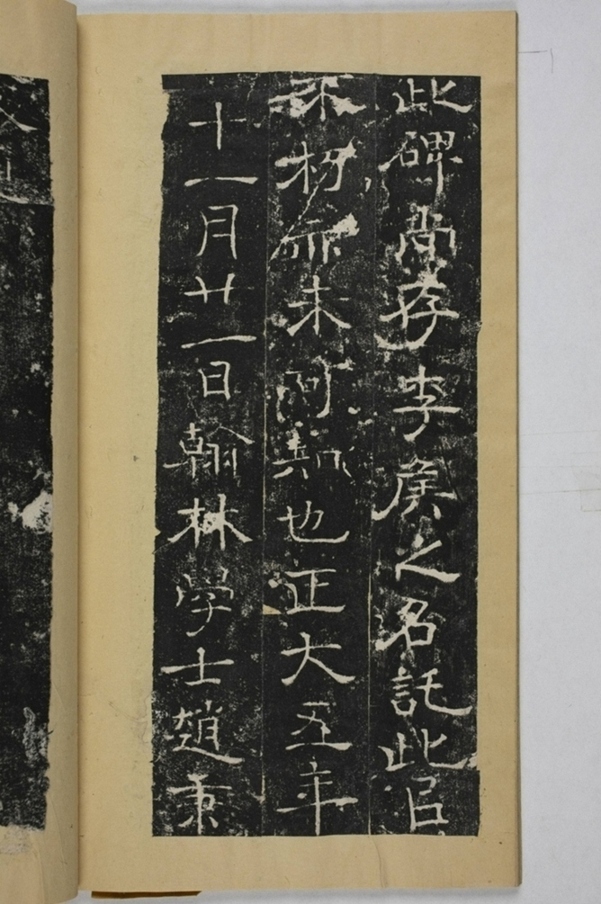 此碑尚存李矦之名託此㠯
不朽亦未可知也正大五年
十一月廿一日翰林學士趙秉